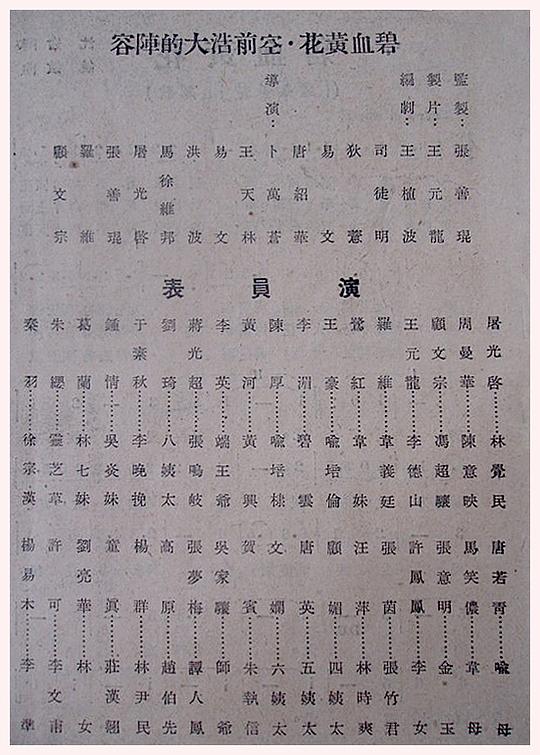 碧血黃花·空前浩大的陣容
監製：張善琨
製片：王元龍
編劇：王植波
司徒明
狄薏
易文
唐紹華
導演：卜萬蒼
王天林
易文
洪波
馬徐維邦
屠光啓
張善琨
羅維
顧文宗
演員表
屠光啓……林覺民
周曼華……陳意映
顧文宗……馮超驤
王元龍……李德山
羅維……韋義廷
鷺紅……韋妹
王豪……喩培倫
李湄……碧雲
陳厚……喩培棣
黃河……黃興
李英……端王爺
蔣光超……張鳴岐
劉琦……八姨太
于素秋……李晚挽
鍾情……吳炎妹
葛蘭……林七妹
朱纓……靈芝草
秦羽……徐宗漢
唐若青……喩母
馬笑儂……韋母
張意明……金玉
許鳳鳳……李女
張茵……張竹君
汪萍……林時爽
顧媚……四姨太
唐英……五姨太
文嫻……六姨太
賀賓……朱執信
吳家驤……師爺
張夢梅……譚人鳳
高原……趙伯先
楊群……林尹民
童眞……莊漢翹
劉亮華……林女
許可……李文甫
楊易木……李準